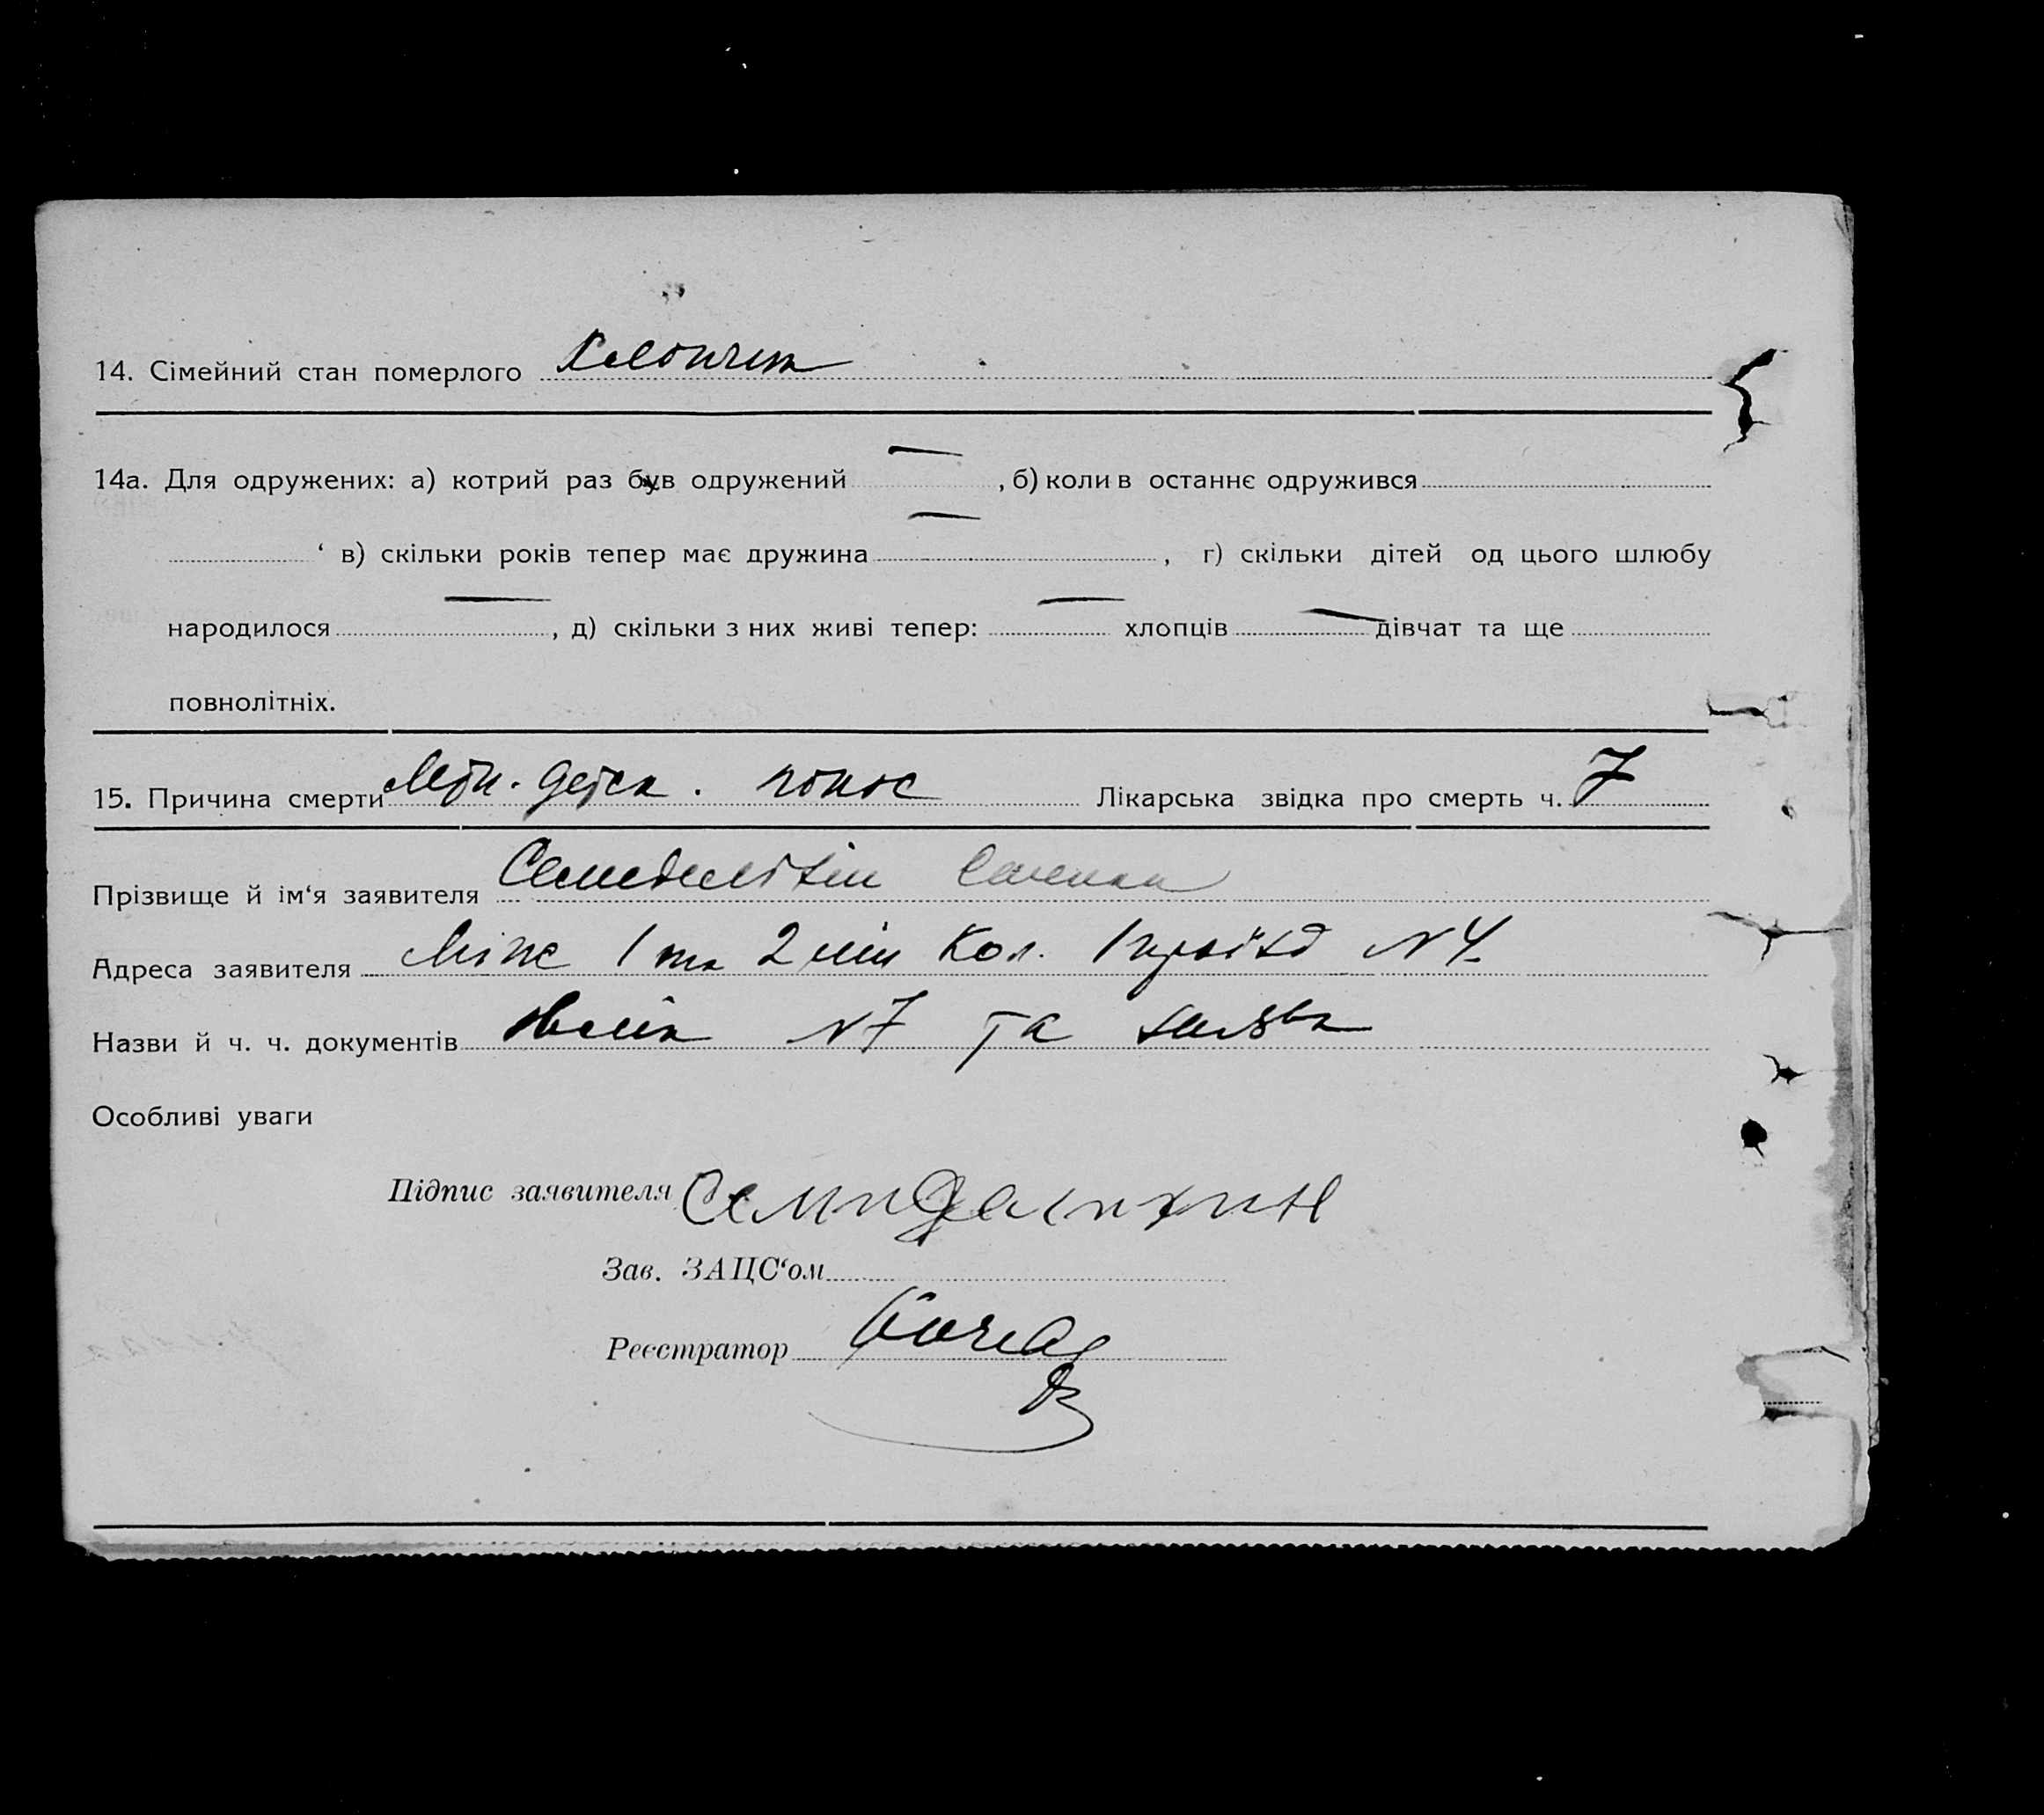 14. Сімейний стан померлого Хлопчик
14а. Для одружених: а) котрий раз був одружений —, б) коли в останнє одружився
‘ в) скільки років тепер має дружина —, г) скільки дітей од цього шлюбу
народилося —, д) скільки з них живі тепер: — хлопців — дівчат та ще
повнолітніх.
15. Причина смерти понос Лікарська звідка про смерть ч. 7
Прізвище й ім‘я заявителя
Адреса заявителя Між 1 та 2 Кол. 1 проїзд N 4
Назви й ч. ч. документів N 7 та заява
Особливі уваги
Підпис заявителя Семидалихин
Зав. ЗАЦС‘ом
Реєстратор